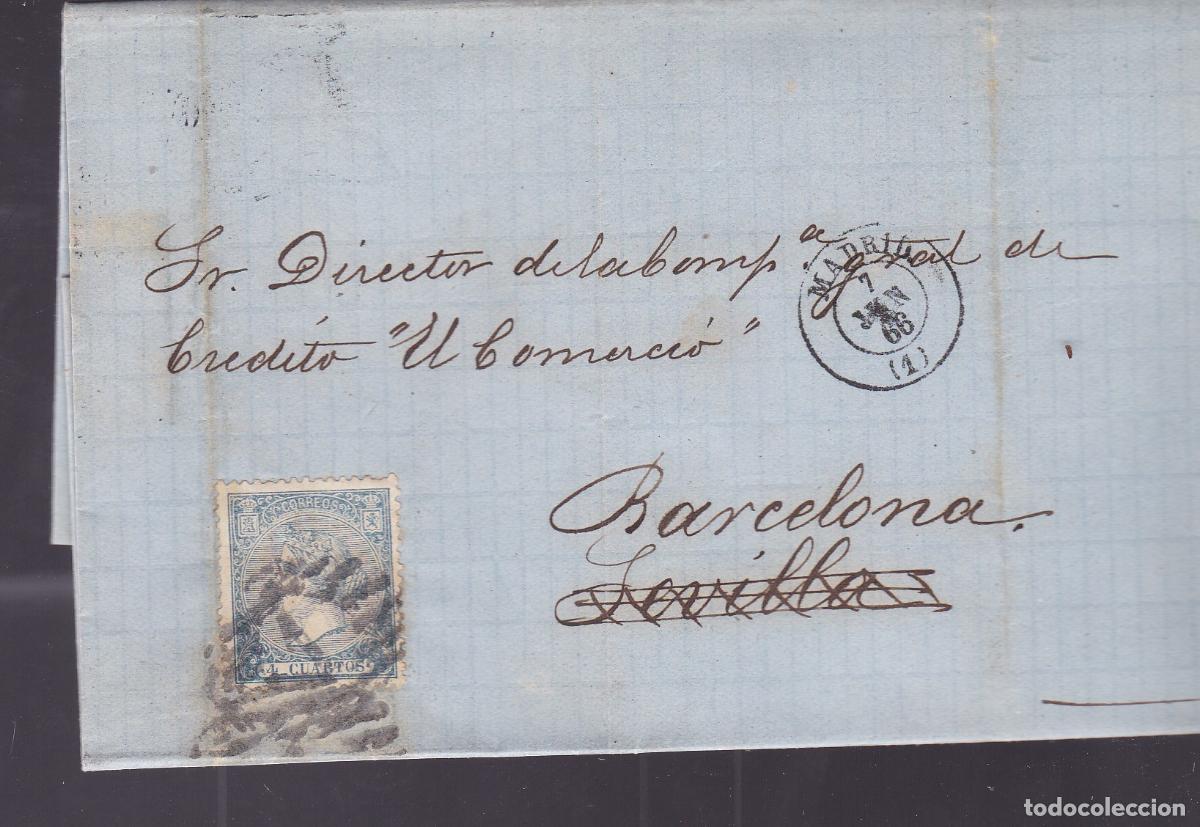 Sr. Director de la Comp.ª gral de
Credito "El Comercio"
MADRID
7
JUN
66
(1)
Barcelona.
Sevilla
CORREOS
4 CUARTOS
todocoleccion